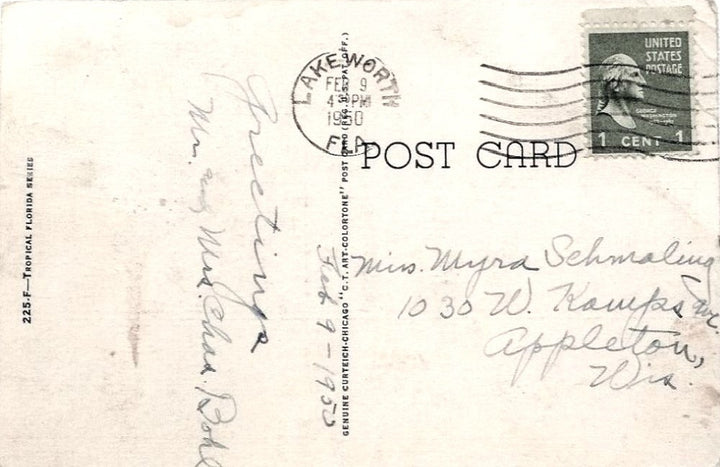 225-F—TROPICAL FLORIDA SERIES
Greetings
Mr. and Mrs. Chas. Bohl
Feb 9-1950
GENUINE CURTEICH-CHICAGO "C.T. ART-COLORTONE" POST CARD (REG. U.S. PAT. OFF.)
LAKE WORTH
FEB 9
4 PM
1950
FLA.
UNITED
STATES
POSTAGE
GEORGE
WASHINGTON
1 CENT 1
POST CARD
Miss. Myra Schmaling
1030 W. Kamps Ave.
Appleton,
Wis.